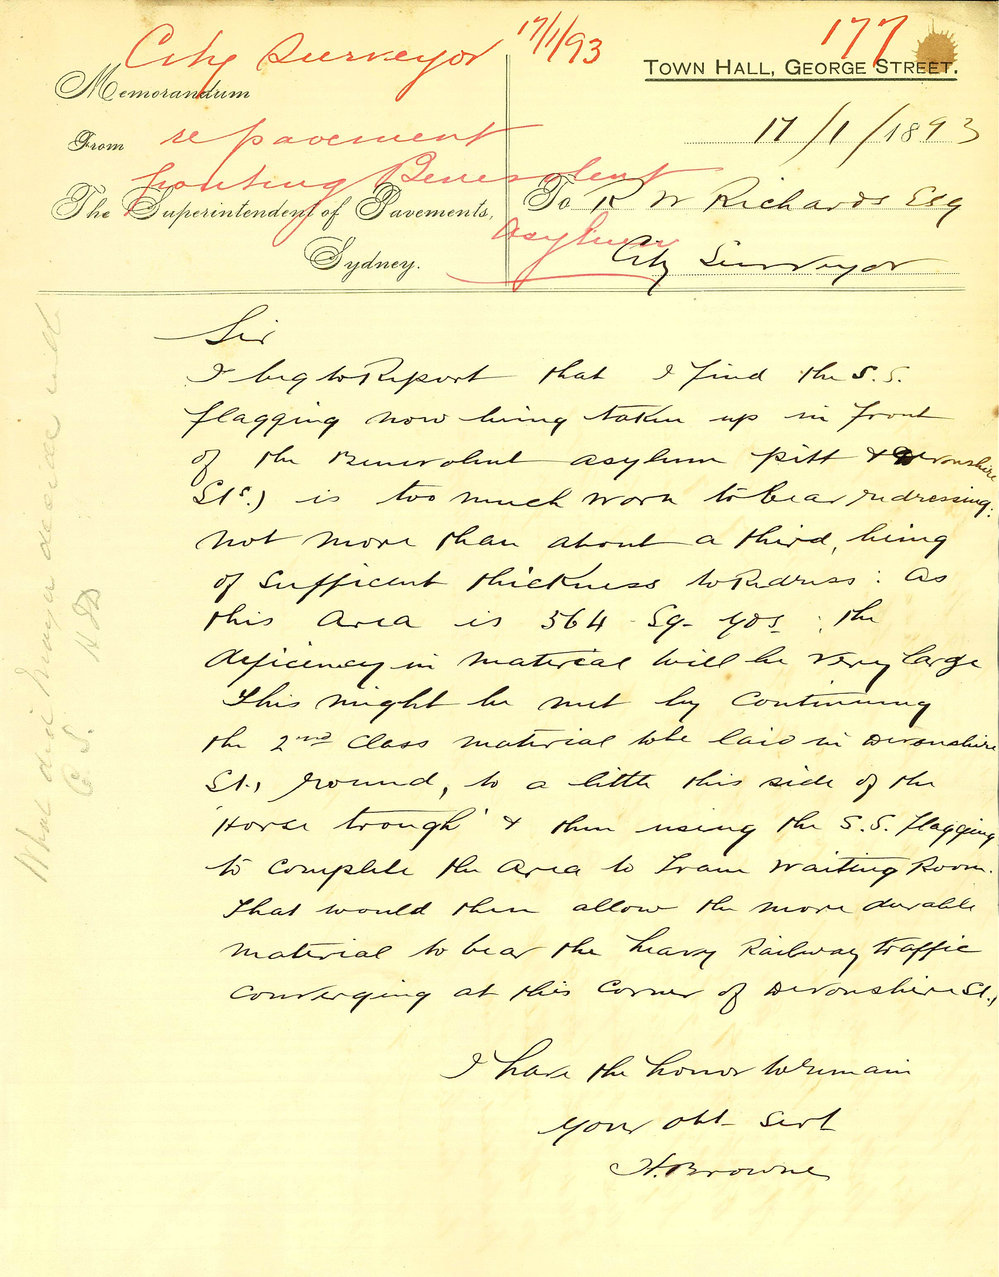 City Surveyor
17/1/93
177
Memorandum
From
The Superintendent of Pavements,
Sydney.
re pavement
fronting Benevolent
Asylum
TOWN HALL, GEORGE STREET.
17/1/1893
To R W Richards Esq
City Surveyor
Sir
I beg to Report that I find the S.S.
flagging now being taken up in front
of the Benevolent Asylum Pitt & Devonshire
Sts.) is too much worn to bear redressing:
not more than about a third, being
of sufficent thickness to Redress: As
this Area is 564 Sq- yds : the
deficiency in material will be very large
This might be met by Continuing
the 2nd Class material to be laid in Devonshire
St., round, to a little this side of the
'Horse trough' & then using the S.S. flagging
to complete the Area to Tram Waiting Room.
That would then allow the more durable
material to bear the heavy Railway traffic
converging at this corner of Devonshire St.,
I have the honor to remain
Your Obt- Servt
H. Browne
What did Mayor decide with
C S. HD